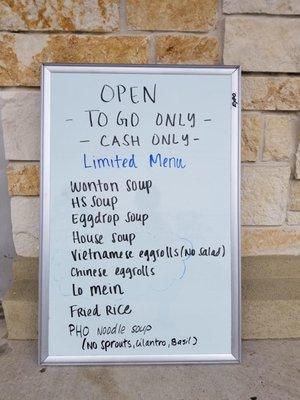 OPEN
- TO GO ONLY -
- CASH ONLY -
Limited Menu
Wonton Soup
HS Soup
Eggdrop Soup
House Soup
Vietnamese eggrolls (NO Salad)
Chinese eggrolls
Lo mein
Fried Rice
PHO Noodle soup
(No sprouts, cilantro, Basil)